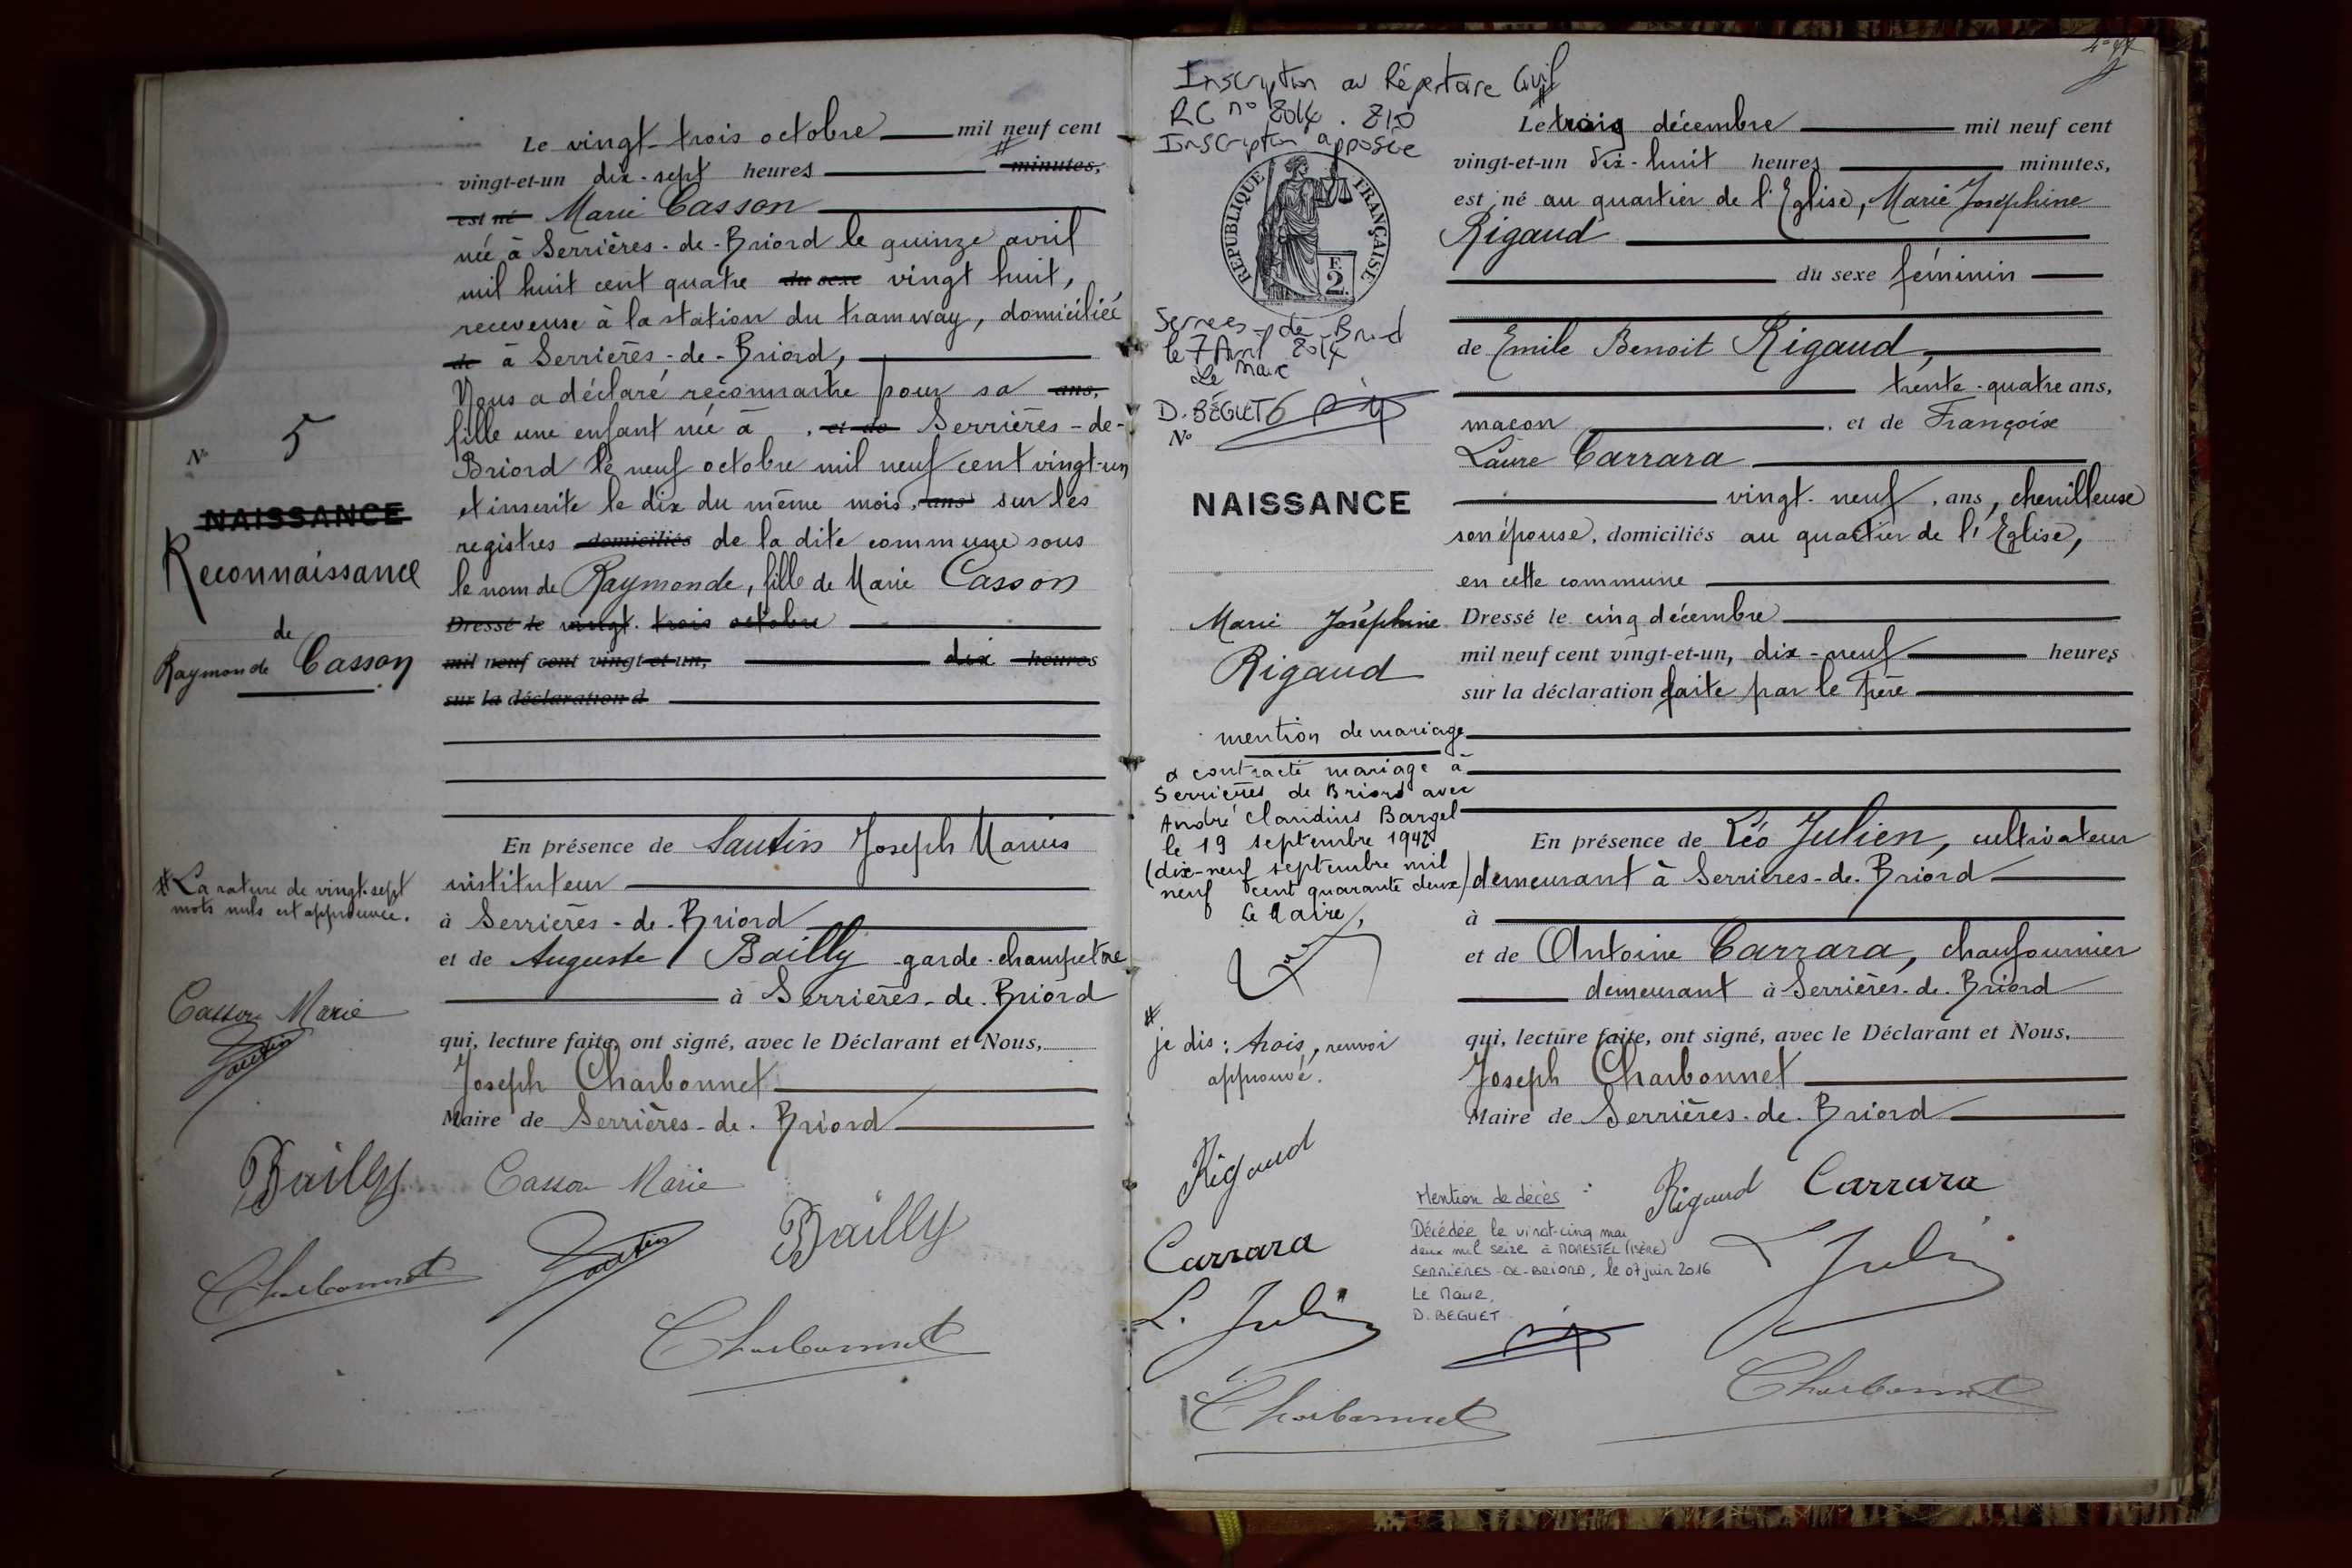 Le vingt-trois octobre mil neuf cent
vingt-et-un dix-sept heures # minutes,
est né Marie Casson
née à Serrières-de-Briord le quinze avril
mil huit cent quatre du sexe vingt huit,
receveuse à la station du tramway, domiciliée
de à Serrières-de-Briord,
Nous a déclaré reconnaitre pour sa ans,
fille une enfant née à , et de Serrières-de-
Briord le neuf octobre mil neuf cent vingt-un
et inscrite le dix du même mois, ans sur les
registres domiciliés de la dite commune sous
le nom de Raymonde, fille de Marie Casson
Dressé le vingt-trois octobre
mil neuf cent vingt-et-un, dix heures
sur la déclaration d
En présence de Sautin Joseph Marius
instituteur
à Serrières-de-Briord
et de Auguste Bailly garde-champetre
à Serrières-de-Briord
qui, lecture faite, ont signé, avec le Déclarant et Nous,
Joseph Charbonnet
Maire de Serrières-de-Briord
N° 5
NAISSANCE
Reconnaissance
de
Raymonde Casson
# La rature de vingt-sept
mots nuls est approuvée.
Casson Marie
Sautin
Bailly Casson Marie
Bailly
Charbonnet Sautin
Charbonnet
Inscription au Répertoire Civil
RC n° 2014 . 210
Inscription apposée
RÉPUBLIQUE FRANÇAISE
F.
2.
Serrières-de-Briord
le 7 Avril 2014
Le Maire
D. BÉGUET
N°
NAISSANCE
Marie Joséphine
Rigaud
mention de mariage
a contracté mariage à
Serrières de Briord avec
André Claudius Bargel
le 19 septembre 1942
(dix-neuf septembre mil
neuf cent quarante deux)
Le Maire,
#
je dis : trois, renvoi
approuvé.
Rigaud
Carrara
L. Julien
Charbonnet
#
Le trois décembre mil neuf cent
vingt-et-un dix-huit heures minutes,
est né au quartier de l'Eglise, Marie Joséphine
Rigaud
du sexe féminin
de Emile Benoit Rigaud,
trente-quatre ans,
maçon , et de Françoise
Laure Carrara
vingt-neuf , ans, chenilleuse
son épouse, domiciliés au quartier de l'Eglise,
en cette commune
Dressé le cinq décembre
mil neuf cent vingt-et-un, dix-neuf heures
sur la déclaration faite par le Père
En présence de Léo Julien, cultivateur
demeurant à Serrières-de-Briord
à
et de Antoine Carrara, chaufournier
demeurant à Serrières-de-Briord
qui, lecture faite, ont signé, avec le Déclarant et Nous,
Joseph Charbonnet
Maire de Serrières-de-Briord
Rigaud Carrara
L Julien
Charbonnet
Mention de décès :
Décédée le vingt-cinq mai
deux mil seize à MORESTEL (ISÈRE)
SERRIÈRES-DE-BRIORD, le 07 juin 2016
Le Maire,
D. BEGUET